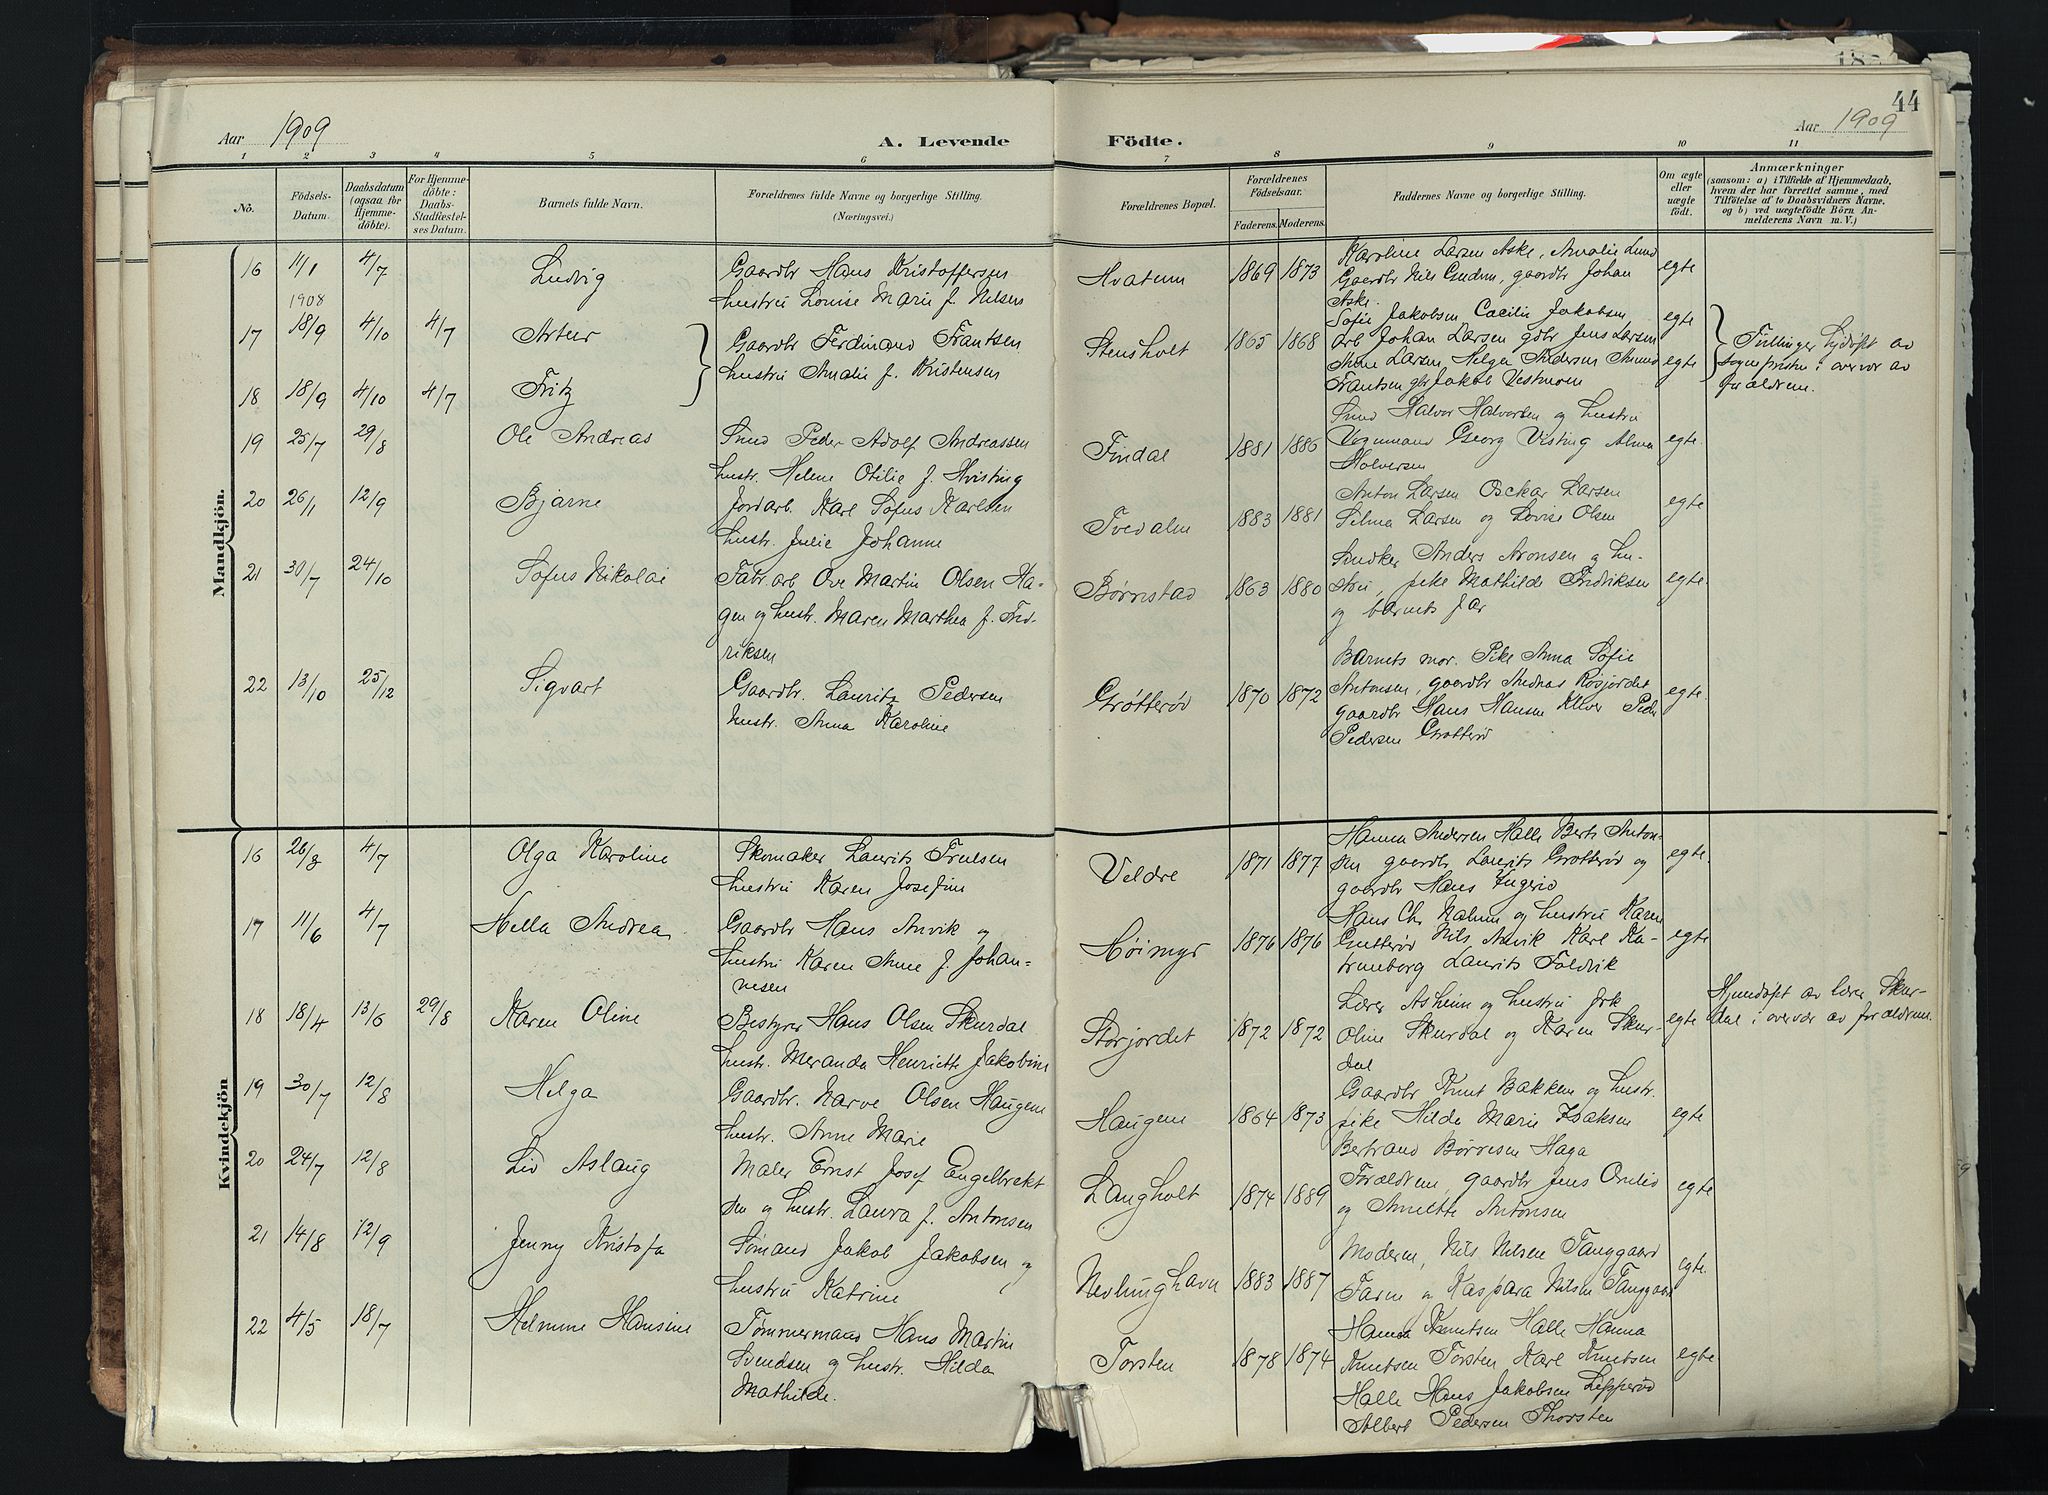 44
Aar 1909
A. Levende
Födte.
Aar 1909
1 2 3 4 5 6 7 8 9 10 11
No.
Födsels-
Datum.
Daabsdatum
(ogsaa for
Hjemme-
döbte).
For Hjemme-
döbte:
Daabs-
Stadfæstel-
ses Datum.
Barnets fulde Navn.
Forældrenes fulde Navne og borgerlige Stilling.
(Næringsvei.)
Forældrenes Bopæl.
Forældrenes
Födselsaar.
Faderens. Moderens.
Faddernes Navne og borgerlige Stilling.
Om ægte
eller
uægte
födt.
Anmærkninger
(saasom: a) i Tilfælde af Hjemmedaab,
hvem der har forrettet samme, med
Tilföielse af to Daabsvidners Navne,
og b) ved uægtefödte Börn An-
melderens Navn m. V.)
Mandkjön.
16 11/1 4/7 Ludvig
Gaardbr Hans Kristoffersen
hustru Louise Marie f. Nilsen
Hvatum 1869 1873
Karoline Larsen Aske, Amalie Lund
Gaardbr Nils Gudm, gaardbr Johan
Aske.
egte
1908
17 18/9 4/10 4/7 Artur
Gaardbr Ferdinand Frantsen
hustru Amalie f. Kristensen
Stensholt 1865 1868
Sofie Jakobsen Cacilie Jakobsen
arb Johan Larsen gdbr Jens Larsen
egte
Tvillinger hjdøpt av
sogneprsten i overvær av
forældrene.
18 18/9 4/10 4/7 Fritz
Anne Larsen Helga Andersen
Frantsen gbr Jakob Vestmoen
egte
19 25/7 29/8 Ole Andreas
Smed Peder Adolf Andreassen
hustr. Helene Otilie f. Hvisting
Findal 1881 1886
Smed Halvor Halvorsen og hustru
Vognmand Georg Visting Alma
Halversen
egte.
20 26/1 12/9 Bjarne
Jordarb. Karl Sofus Karlsen
hustr. Julie Johanne
Tvedalm 1883 1881
Anton Larsen Osckar Larsen
Selma Larsen og Lovise Olsen
egte
21 30/7 24/10 Sofus Nikolai
Fabr.arb Ove Martin Olsen Ha-
gen og hustr. Maren Marthea f. Fred-
riksen
Børnstad 1863 1880
Sndker Anders Aronsen og hu-
stru, pike Mathilde Fredriksen
og barnets far
egte.
22 13/10 25/12 Sigvart
Gaardbr. Lauritz Pedersen
hustr. Anna Karoline
Grøtterød 1870 1872
Barnets mor. Pike Anna Sofie
Antonsen, gaardbr Andreas Røsjordet
gaardbr Hans Hansen Klever Peder
Pedersen Grøtterød
egte.
Kvindekjön
16 26/3 4/7 Olga Karoline
Skomaker Laurits Trulsen
hustru Karen Josefine
Veldre 1871 1877
Hanna Andersen Halle Berts Anton-
sen gaardbr Laurits Grøtterød og
gaardbr Hans
egte.
17 11/6 4/7 Hella Andrea
Gaardbr Hans Anvik og
hustru Karen Anne f. Johan-
nesen
Høimyr 1876 1876
Hans Chr Nalum og hustru Karen
Nils Anvik Karl Ka-
trineborg Laurits Foldvik
egte
18 18/4 13/6 29/8 Karen Oline
Bestyrer Hans Olsen Skurdal
hustr. Meranda Henriette Jakobine
Storjordet 1872 1872
Lærer Asheim og hustru frk
Oline Skurdal og Karen Skur-
dal
egte
Hjemdøpt av lærer Skur-
dal i overvær av forældrene.
19 30/7 12/8 Helga
Gaardbr. Narve Olsen Haugene
hustr. Anne Marie
Haugene 1864 1873
Gaardbr Knut Bakken og hustr.
pike Hilda Marie Isaksen
Bertrand Børresen Haga
egte
20 24/7 12/8 Liv Aslaug
Maler Ernst Josef Engelbrekt
sen og hustr. Laura f. Antonsen
Langholt 1874 1889
Forældrene, gaardbr Jens Omlid
og Anette Antonsen
egte
21 14/8 12/9 Jenny Kristofa
Sømand Jakob Jakobsen og
hustru Katrine
Nevlunghavn 1883 1887
Moderen, Nils Nilsen Tanggaard
Faren og Kaspara Nilsen Tanggaar
egte.
22 4/5 18/7 Helmine Hansine
Tømmermand Hans Martin
Svendsen og hustr. Hilda
Mathilde.
Torsten 1878 1874
Hanna Knutsen Halle Hanna
Knutsen Torsten Karl Knutsen
Halle Hans Jakobsen Lepperød
Albert Pedersen Thorsten
egte